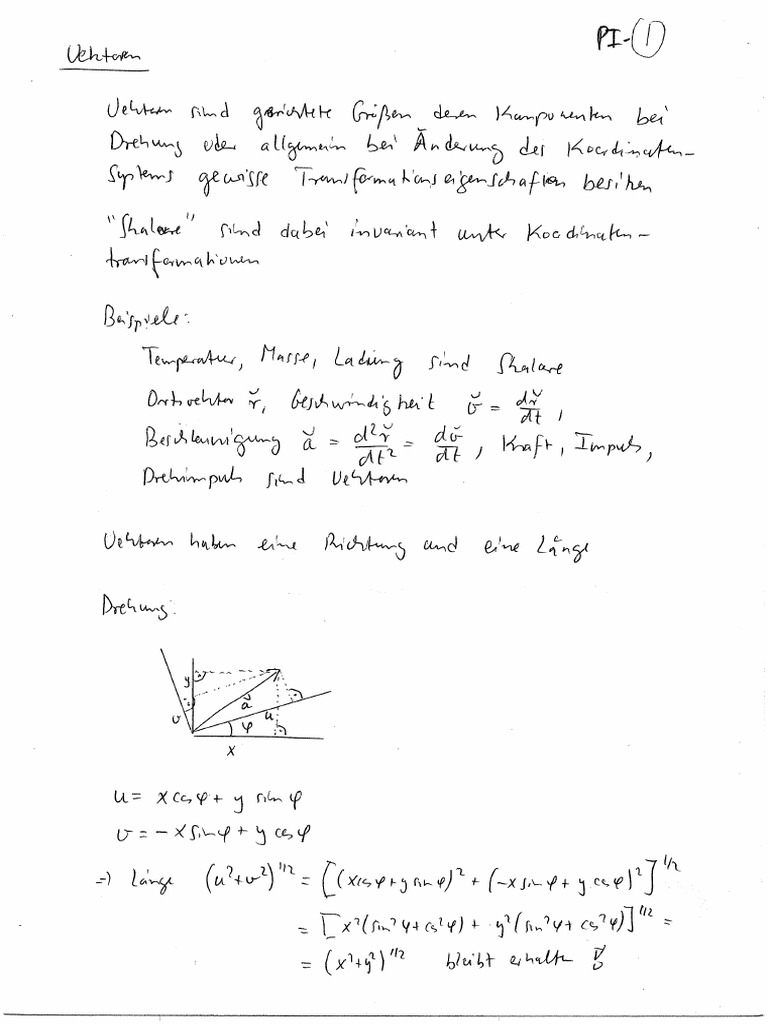 PI-1
Vektoren
Vektoren sind gerichtete Größen deren Komponenten bei
Drehung oder allgemein bei Änderung des Koordinaten-
Systems gewisse Transformationseigenschaften besitzen
"Skalare" sind dabei invariant unter Koordinaten-
transformationen
Beispiele:
Temperatur, Masse, Ladung sind Skalare
Ortsvektor r⃗, Geschwindigkeit v⃗ = dr⃗/dt,
Beschleunigung a⃗ = d²r⃗/dt² = dv⃗/dt, Kraft, Impuls,
Drehimpuls sind Vektoren
Vektoren haben eine Richtung und eine Länge
Drehung:
y
v
a⃗
u
φ
x
u = x cos φ + y sin φ
v = -x sin φ + y cos φ
⇒ Länge (u²+v²)^1/2 = [(x cos φ + y sin φ)² + (-x sin φ + y cos φ)²]^1/2
= [x²(sin²φ + cos²φ) + y²(sin²φ + cos²φ)]^1/2 =
= (x²+y²)^1/2 bleibt erhalten !